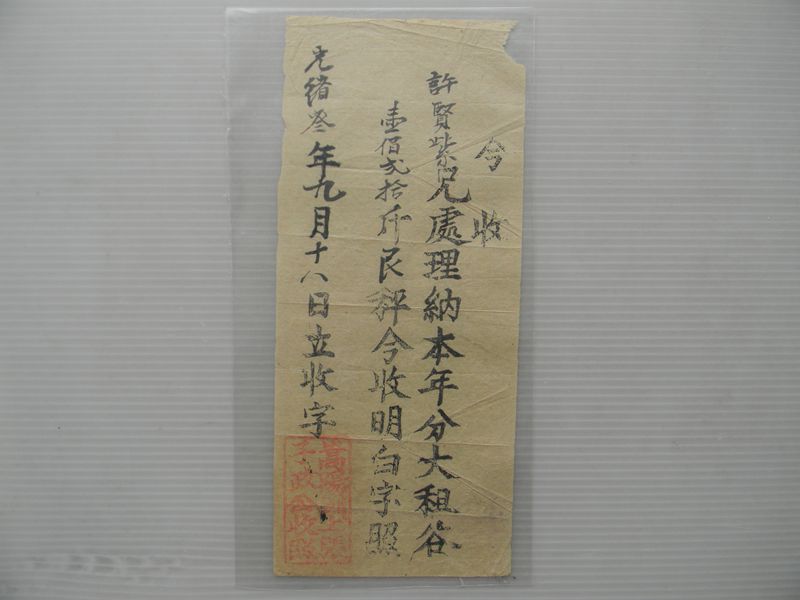 今收
許賢紫兄處理納本年分大租谷
壹佰弍拾斤艮秤今收明白字照
光緒叁年九月十八日立收字